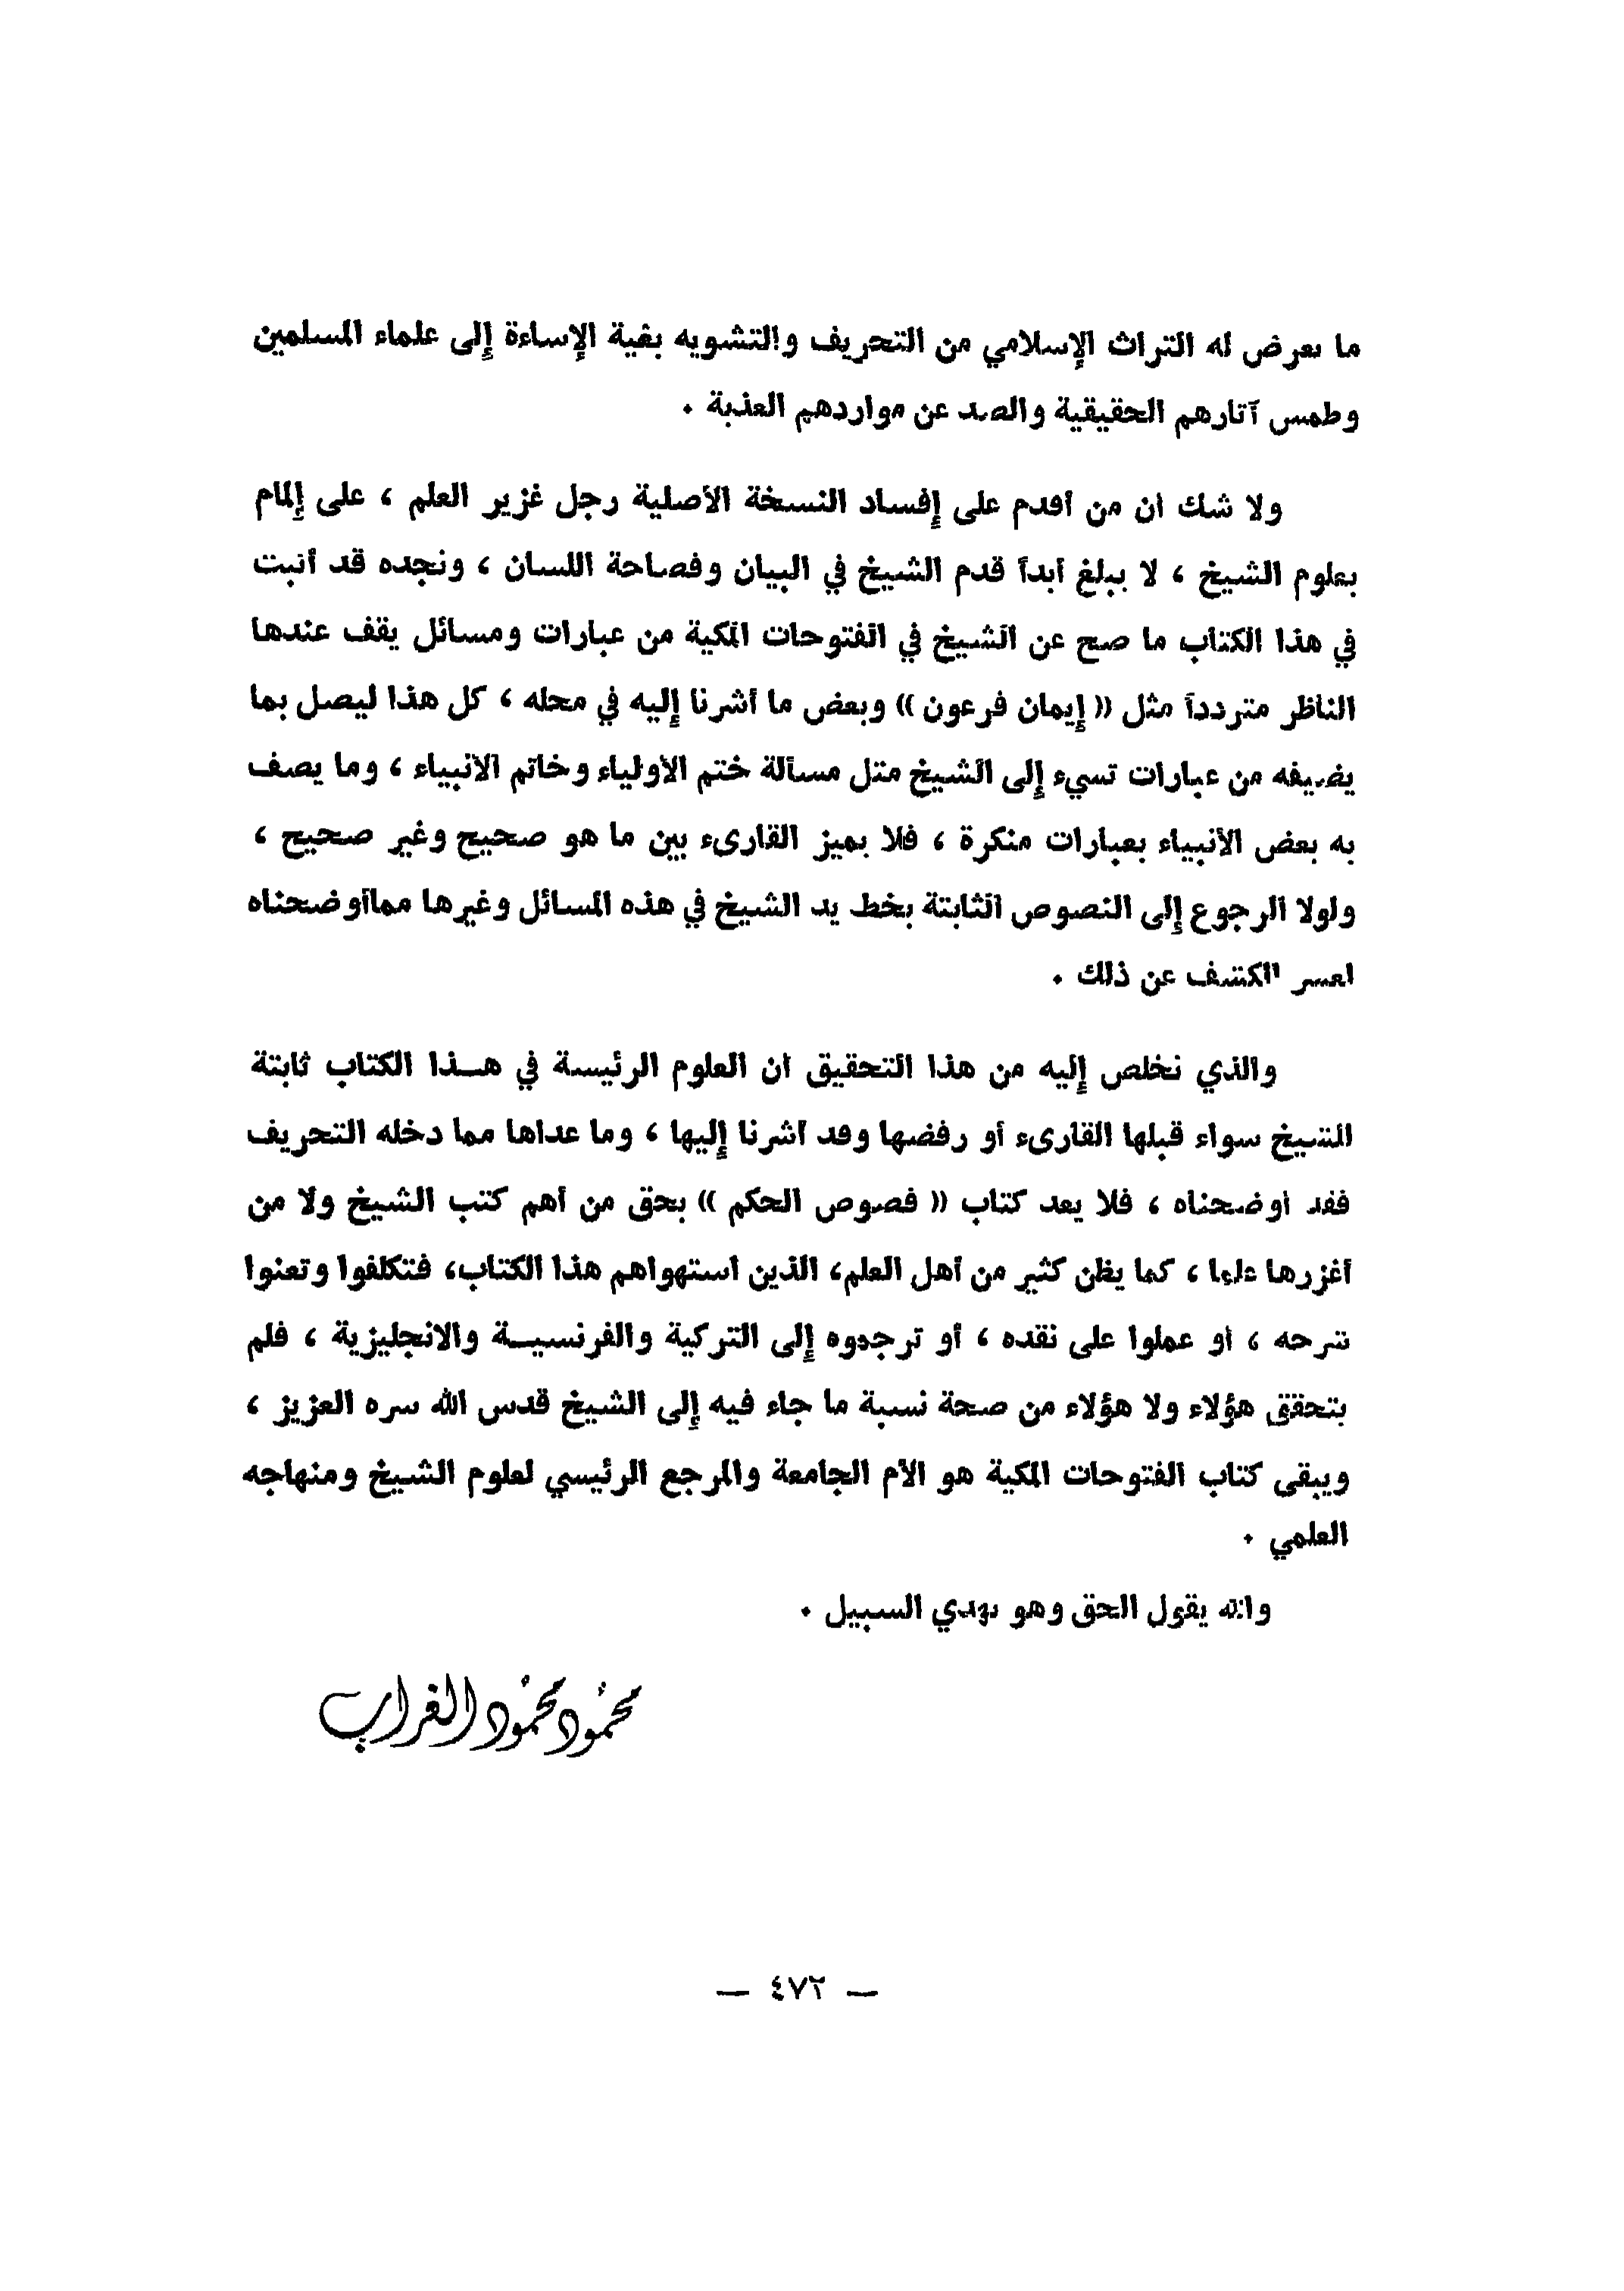 ما تعرض له التراث الإسلامي من التحريف والتشويه بغية الإساءة إلى علماء المسلمين
وطمس آثارهم الحقيقية والصد عن مواردهم العذبة ٠
ولا شك أن من أقدم على إفساد النسخة الأصلية رجل غزير العلم ، على إلمام
بعلوم الشيخ ، لا يبلغ أبداً قدم الشيخ في البيان وفصاحة اللسان ، ونجده قد أثبت
في هذا الكتاب ما صح عن الشيخ في الفتوحات المكية من عبارات ومسائل يقف عندها
الناظر متردداً مثل (( إيمان فرعون )) وبعض ما أشرنا إليه في محله ، كل هذا ليصل بما
يضيفه من عبارات تسيء إلى الشيخ مثل مسألة ختم الأولياء وخاتم الأنبياء ، وما يصف
به بعض الأنبياء بعبارات منكرة ، فلا يميز القارىء بين ما هو صحيح وغير صحيح ،
ولولا الرجوع إلى النصوص الثابتة بخط يد الشيخ في هذه المسائل وغيرها مما أوضحناه
لعسر الكشف عن ذلك ٠
والذي نخلص إليه من هذا التحقيق أن العلوم الرئيسة في هــذا الكتاب ثابتة
للشيخ سواء قبلها القارىء أو رفضها وقد أشرنا إليها ، وما عداها مما دخله التحريف
فقد أوضحناه ، فلا يعد كتاب (( فصوص الحكم )) بحق من أهم كتب الشيخ ولا من
أغزرها علما ، كما يظن كثير من أهل العلم، الذين استهواهم هذا الكتاب، فتكلفوا وتعنوا
شرحه ، أو عملوا على نقده ، أو ترجموه إلى التركية والفرنسيــة والانجليزية ، فلم
يتحقق هؤلاء ولا هؤلاء من صحة نسبة ما جاء فيه إلى الشيخ قدس الله سره العزيز ،
ويبقى كتاب الفتوحات المكية هو الأم الجامعة والمرجع الرئيسي لعلوم الشيخ ومنهاجه
العلمي ٠
والله يقول الحق وهو يهدي السبيل ٠
محمود محمود الغراب
— ٤٧٢ —